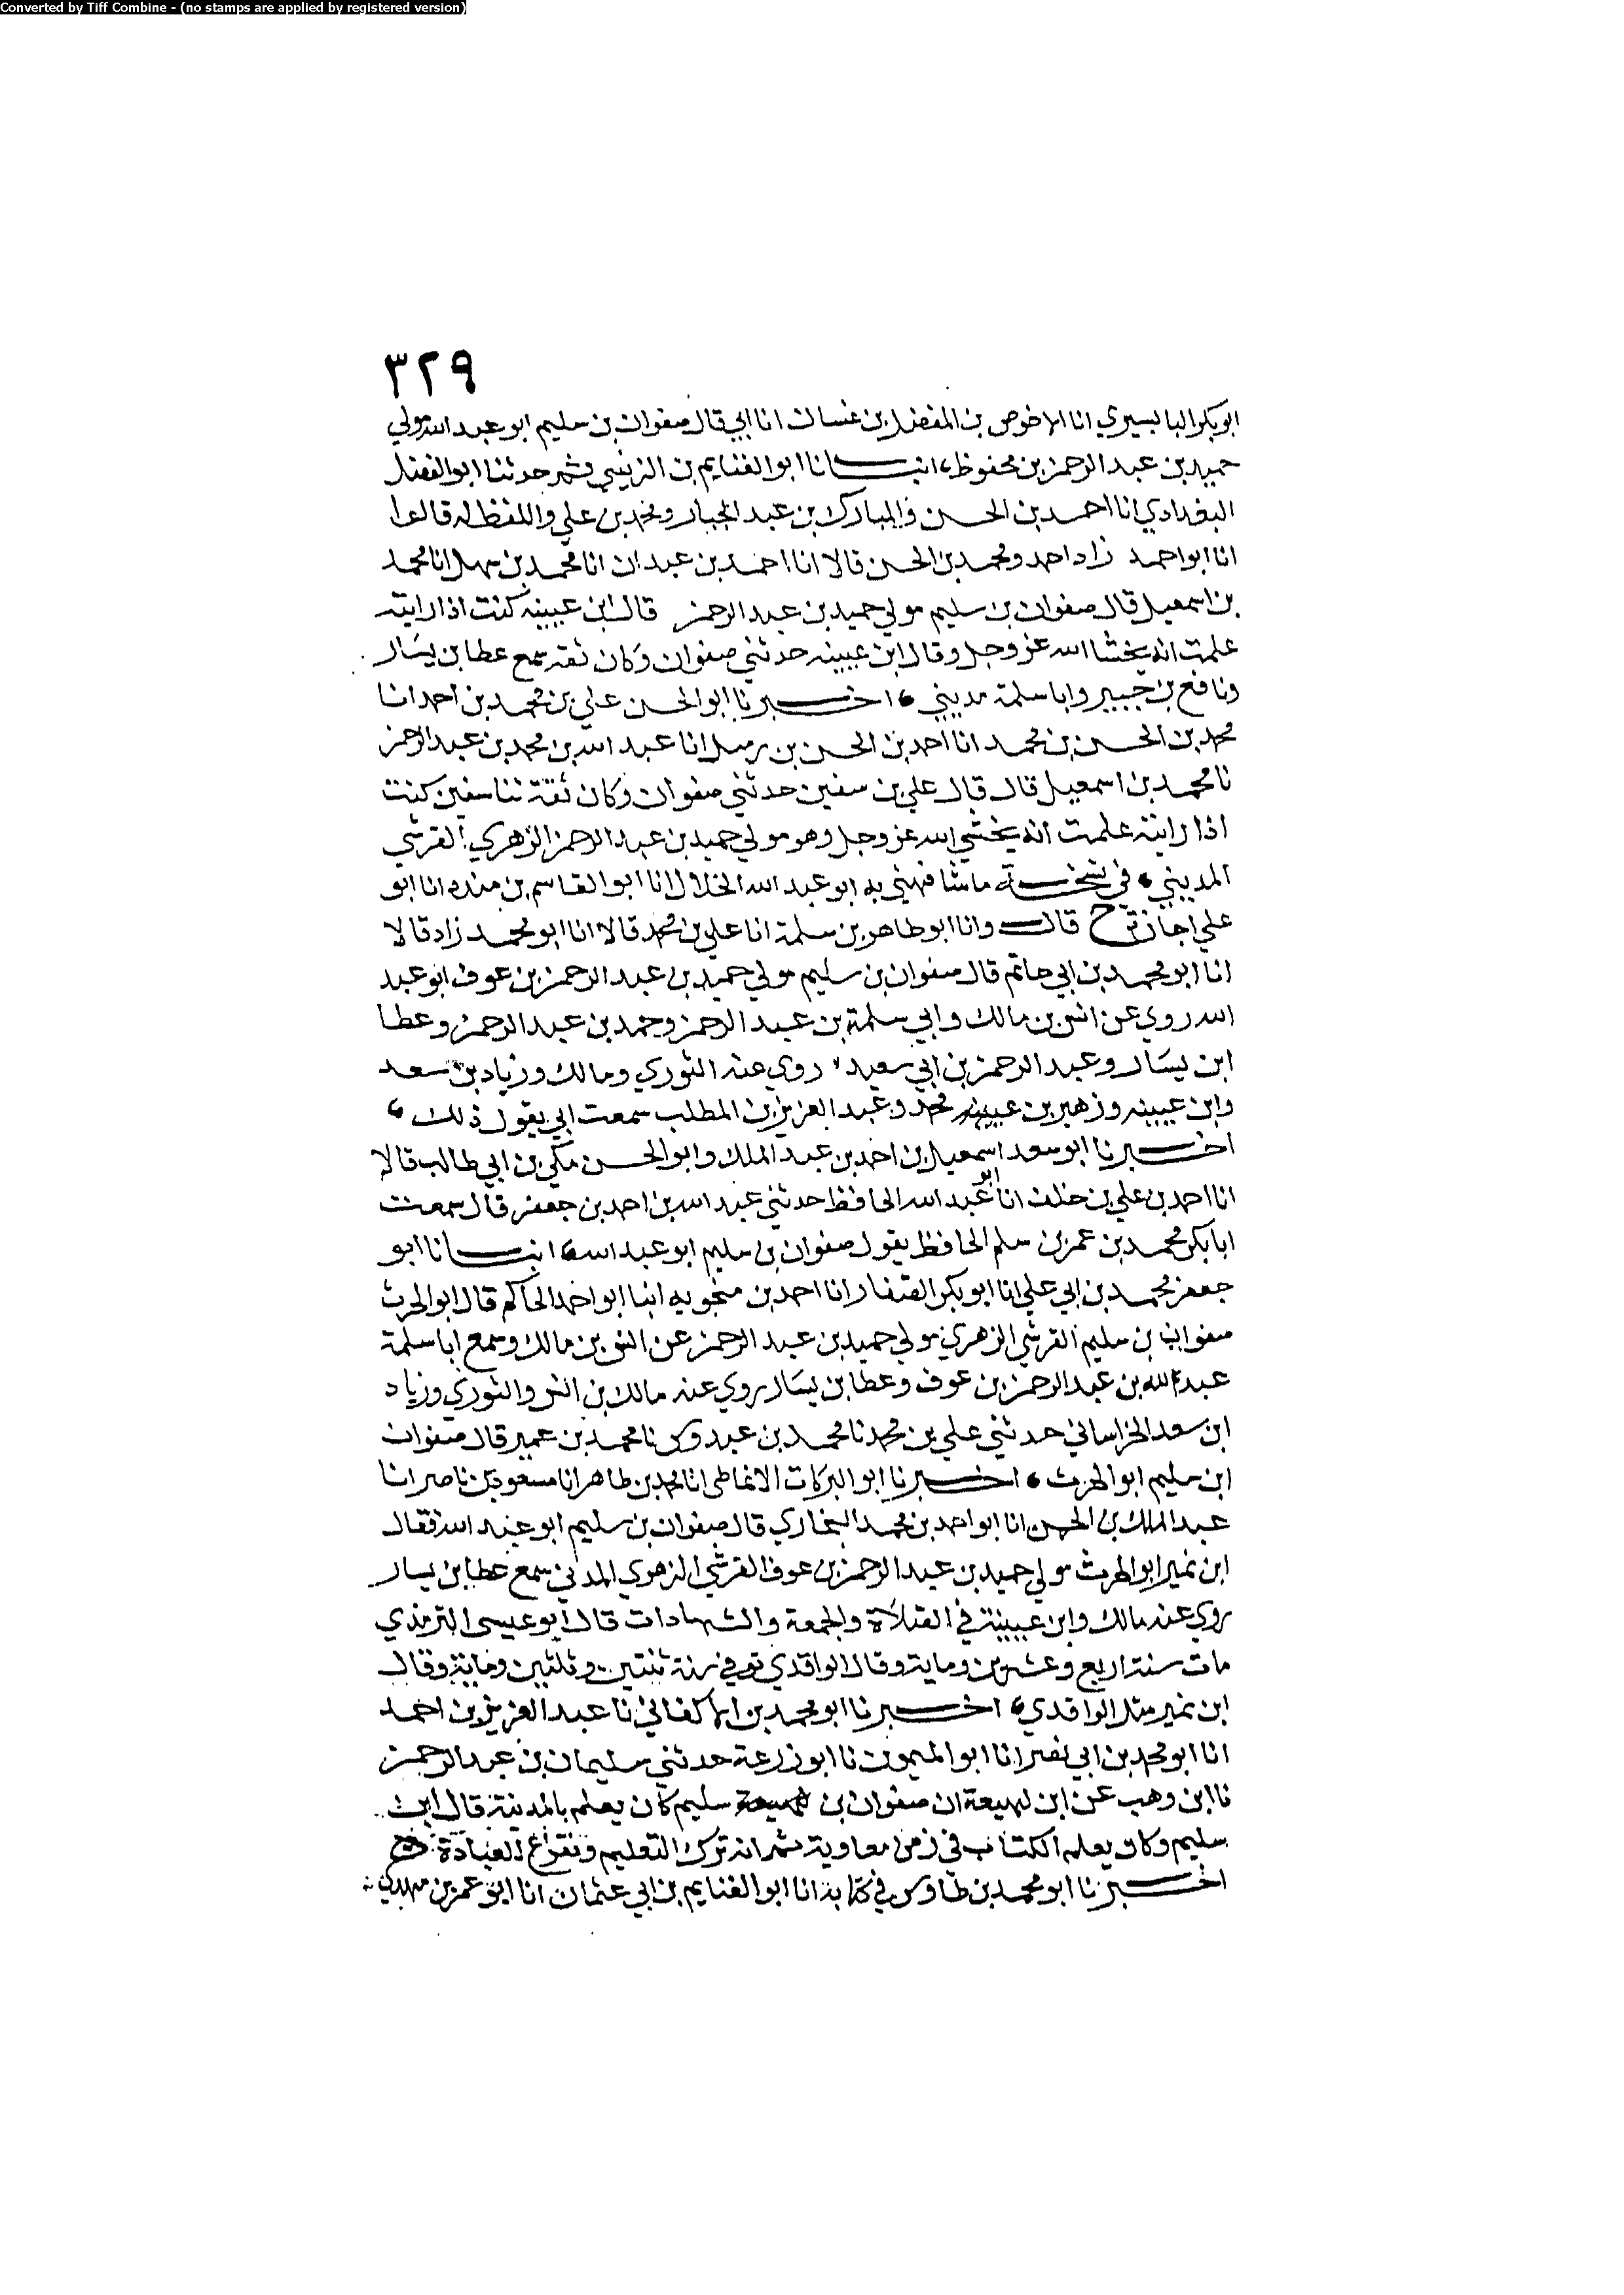 Converted by Tiff Combine - (no stamps are applied by registered version)
٣٢٩
ابو بكر البابسيري انا الاخوص بن المفضل بن غسان انا ابي قال صفوان بن سليم ابو عبد الله مولي
حميد بن عبد الرحمن بن محفوظ، انبــانا ابو الغنايم بن النرسي وثم حدثنا ابو الفضل
البغدادي انا احمد بن الحسن والمبارك بن عبد الجبار ومحمد بن علي واللفظ له قالوا
انا ابو احمد زاد احمد ومحمد بن الحسن قالا انا احمد بن عبدان انا محمد بن سهل انا محمد
بن اسمعيل قال صفوان بن سليم مولي حميد بن عبد الرحمن قال ابن عيينه كنت اذا رايته
علمت انه يخشا الله عز وجل وقال ابن عيينه حدثني صفوان وكان ثقه سمع عطا بن يسار
ونافع بن جبير وابا سلمة مديني ، اخــبرنا ابو الحسن علي بن محمد بن احمد انا
محمد بن الحسن بن محمد انا احمد بن الحسن بن زنبيل انا عبد الله بن محمد بن عبد الرحمن
نا محمد بن اسمعيل قال قال علي بن سفين حدثني صفوان وكان ثقة نا سفين كنت
اذا رايته علمت انه يخشي الله عز وجل وهو مولي حميد بن عبد الرحمن الزهري القرشي
المديني، في نسخــة ما شافهني به ابو عبد الله الخلال انا ابو القاسم بن منده انا ابو
علي اجازة ح قال وانا ابو طاهر بن سلمة انا علي بن محمد قالا انا ابو محمد زاد قالا
انا ابو محمد بن ابي حاتم قال صفوان بن سليم مولي حميد بن عبد الرحمن بن عوف ابو عبد
الله روي عن انس بن مالك وابي سلمة بن عبد الرحمن وحمد بن عبد الرحمن وعطا
ابن يسار وعبد الرحمن بن ابي سعيد، روي عنه الثوري ومالك وزياد بن سعد
وابن عيينه وزهير بن محمد وعبد العزيز بن المطلب سمعت ابي يقول ذلك،
اخــبرنا ابو سعد اسمعيل بن احمد بن عبد الملك وابو الحسن مكي بن ابي طالب قالا
انا احمد بن علي بن خلف انا ابو عبد الله الحافظ حدثني عبد الله بن احمد بن جعفر قال سمعت
ابا بكر محمد بن عمر بن سلم الحافظ يقول صفوان بن سليم ابو عبد الله، انبــانا ابو
جعفر محمد بن ابي علي انا ابو بكر الصفار انا احمد بن منجويه انبا ابو احمد الحاكم قال ابو الحرث
صفوان بن سليم القرشي الزهري مولي حميد بن عبد الرحمن عن انس بن مالك وسمع ابا سلمة
عبد الله بن عبد الرحمن بن عوف وعطا بن يسار روي عنه مالك بن انس والثوري وزياد
ابن سعد الخراساني حدثني علي بن محمد نا محمد بن عبدوس نا محمد بن عمير قال صفوان
ابن سليم ابو الحرث، اخــبرنا ابو البركات الانماطي انا محمد بن طاهر انا مسعود بن ناصر انا
عبد الملك بن الحسن انا ابو احمد بن محمد البخاري قال صفوان بن سليم ابو عبد الله فقال
ابن نمير ابو الحرث مولي حميد بن عبد الرحمن بن عوف القرشي الزهري المدني سمع عطا بن يسار
روي عنه مالك وابن عيينة في الصلاة والجمعة والشهادات قال ابو عيسى الترمذي
مات سنة اربع وعشرين وماية وقال الواقدي توفي سنة ثنتين وثلثين وماية وقال
ابن نمير مثل الواقدي، اخــبرنا ابو محمد بن الاكفاني نا عبد العزيز بن احمد
انا ابو محمد بن ابي نصر انا ابو الميمون نا ابو زرعة حدثني سليمان بن عبد الرحمن
نا ابن وهب عن ابن لهيعة ان صفوان بن سليم كان يعلم بالمدينة قال ابن
سليم وكان يعلم الكتاب في زمن معاوية ثم انه ترك التعليم وتفرغ للعبادة
اخــبرنا ابو محمد بن طاوس في كتابه انا ابو الغنايم بن ابي عثمان انا ابو عمر بن مهدي